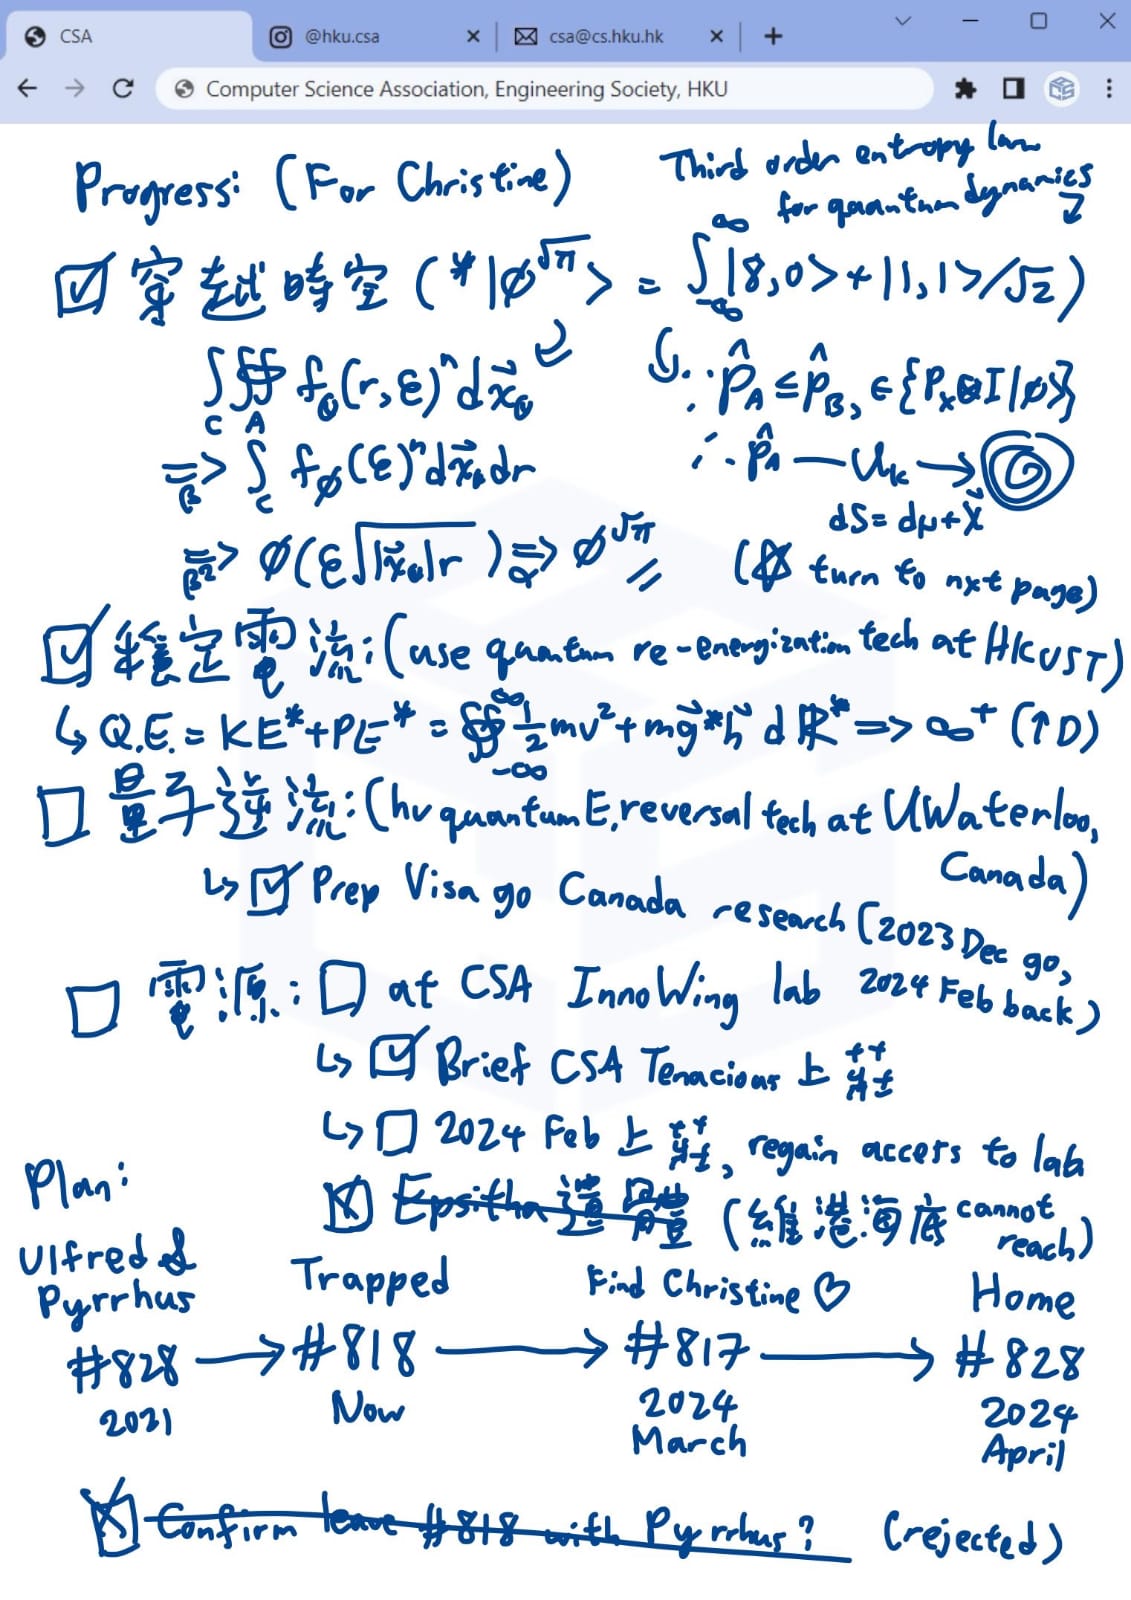 CSA @hku.csa csa@cs.hku.hk
Computer Science Association, Engineering Society, HKU
Progress: (For Christine)
Third order entropy law
for quantum dynamics
☑ 穿越時空 (*|∅^√π> = ∫_-∞^∞ |8,0>+|1,1>/√2)
∫_C ∯_A f_θ(r,ε)^n dx⃗_θ
∵ P̂_A ≤ P̂_B, ∈{P_x⊗I|∅>}
=>_β ∫_C f_∅(ε)^n dx⃗ dr
∴ P̂_A — U_k →
dS = dμ + x⃗
=>_β² ∅(ε√|x⃗|r) =>_α ∅^√π //
(☆ turn to nxt page)
☑ 穩定電流: (use quantum re-energization tech at HKUST)
↳ Q.E. = KE*+PE* = ∯_-∞^∞ 1/2 mv²+mg⃗*h⃗ dR* => ∞⁺ (↑D)
☐ 量子逆流: (hv quantum E. reversal tech at UWaterloo,
Canada)
↳ ☑ Prep Visa go Canada research (2023 Dec go,
2024 Feb back)
☐ 電源: ☐ at CSA InnoWing lab
↳ ☑ Brief CSA Tenacious 上莊
↳ ☐ 2024 Feb 上莊, regain access to lab
☒ Epsitha 遺置 (維港海底 cannot
reach)
Plan:
Ulfred &
Pyrrhus
Trapped
Find Christine ♡
Home
#828 → #818 → #817 → #828
2021
Now
2024
March
2024
April
☒ Confirm leave #818 with Pyrrhus? (rejected)